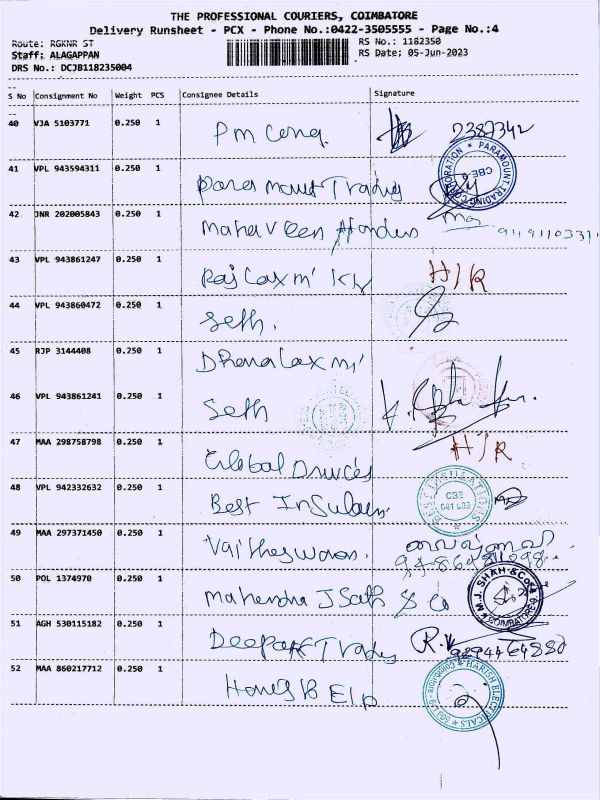 THE PROFESSIONAL COURIERS, COIMBATORE
Delivery Runsheet - PCX - Phone No.:0422-3505555 - Page No.:4
Route: RGKNR ST
RS No.: 1182350
Staff: ALAGAPPAN
RS Date: 05-Jun-2023
DRS No.: DCJB118235004
S No Consignment No Weight PCS Consignee Details Signature
40 VJA 5103771 0.250 1
Pm Cong. 2387342
41 VPL 943594311 0.250 1
Paramount Trading
PARAMOUNT TRADING CORPORATION ★ CBE-9
42 JNR 202005843 0.250 1
Mahaveer
43 VPL 943861247 0.250 1
Rajlaxmi H/R
44 VPL 943860472 0.250 1
Seth.
45 RJP 3144408 0.250 1
Dhanalaxmi
46 VPL 943861241 0.250 1
Seth
47 MAA 298758798 0.250 1
Global Drives H/R
48 VPL 942332632 0.250 1
Best
CBE
49 MAA 297371450 0.250 1
50 POL 1374970 0.250 1
Mahendra J Sath & Co
M.J. SHAH & Co. COIMBATORE
51 AGH 530115182 0.250 1
Deepak Trades
52 MAA 860217712 0.250 1
HARISH ELECTRICALS ★ Coimbatore